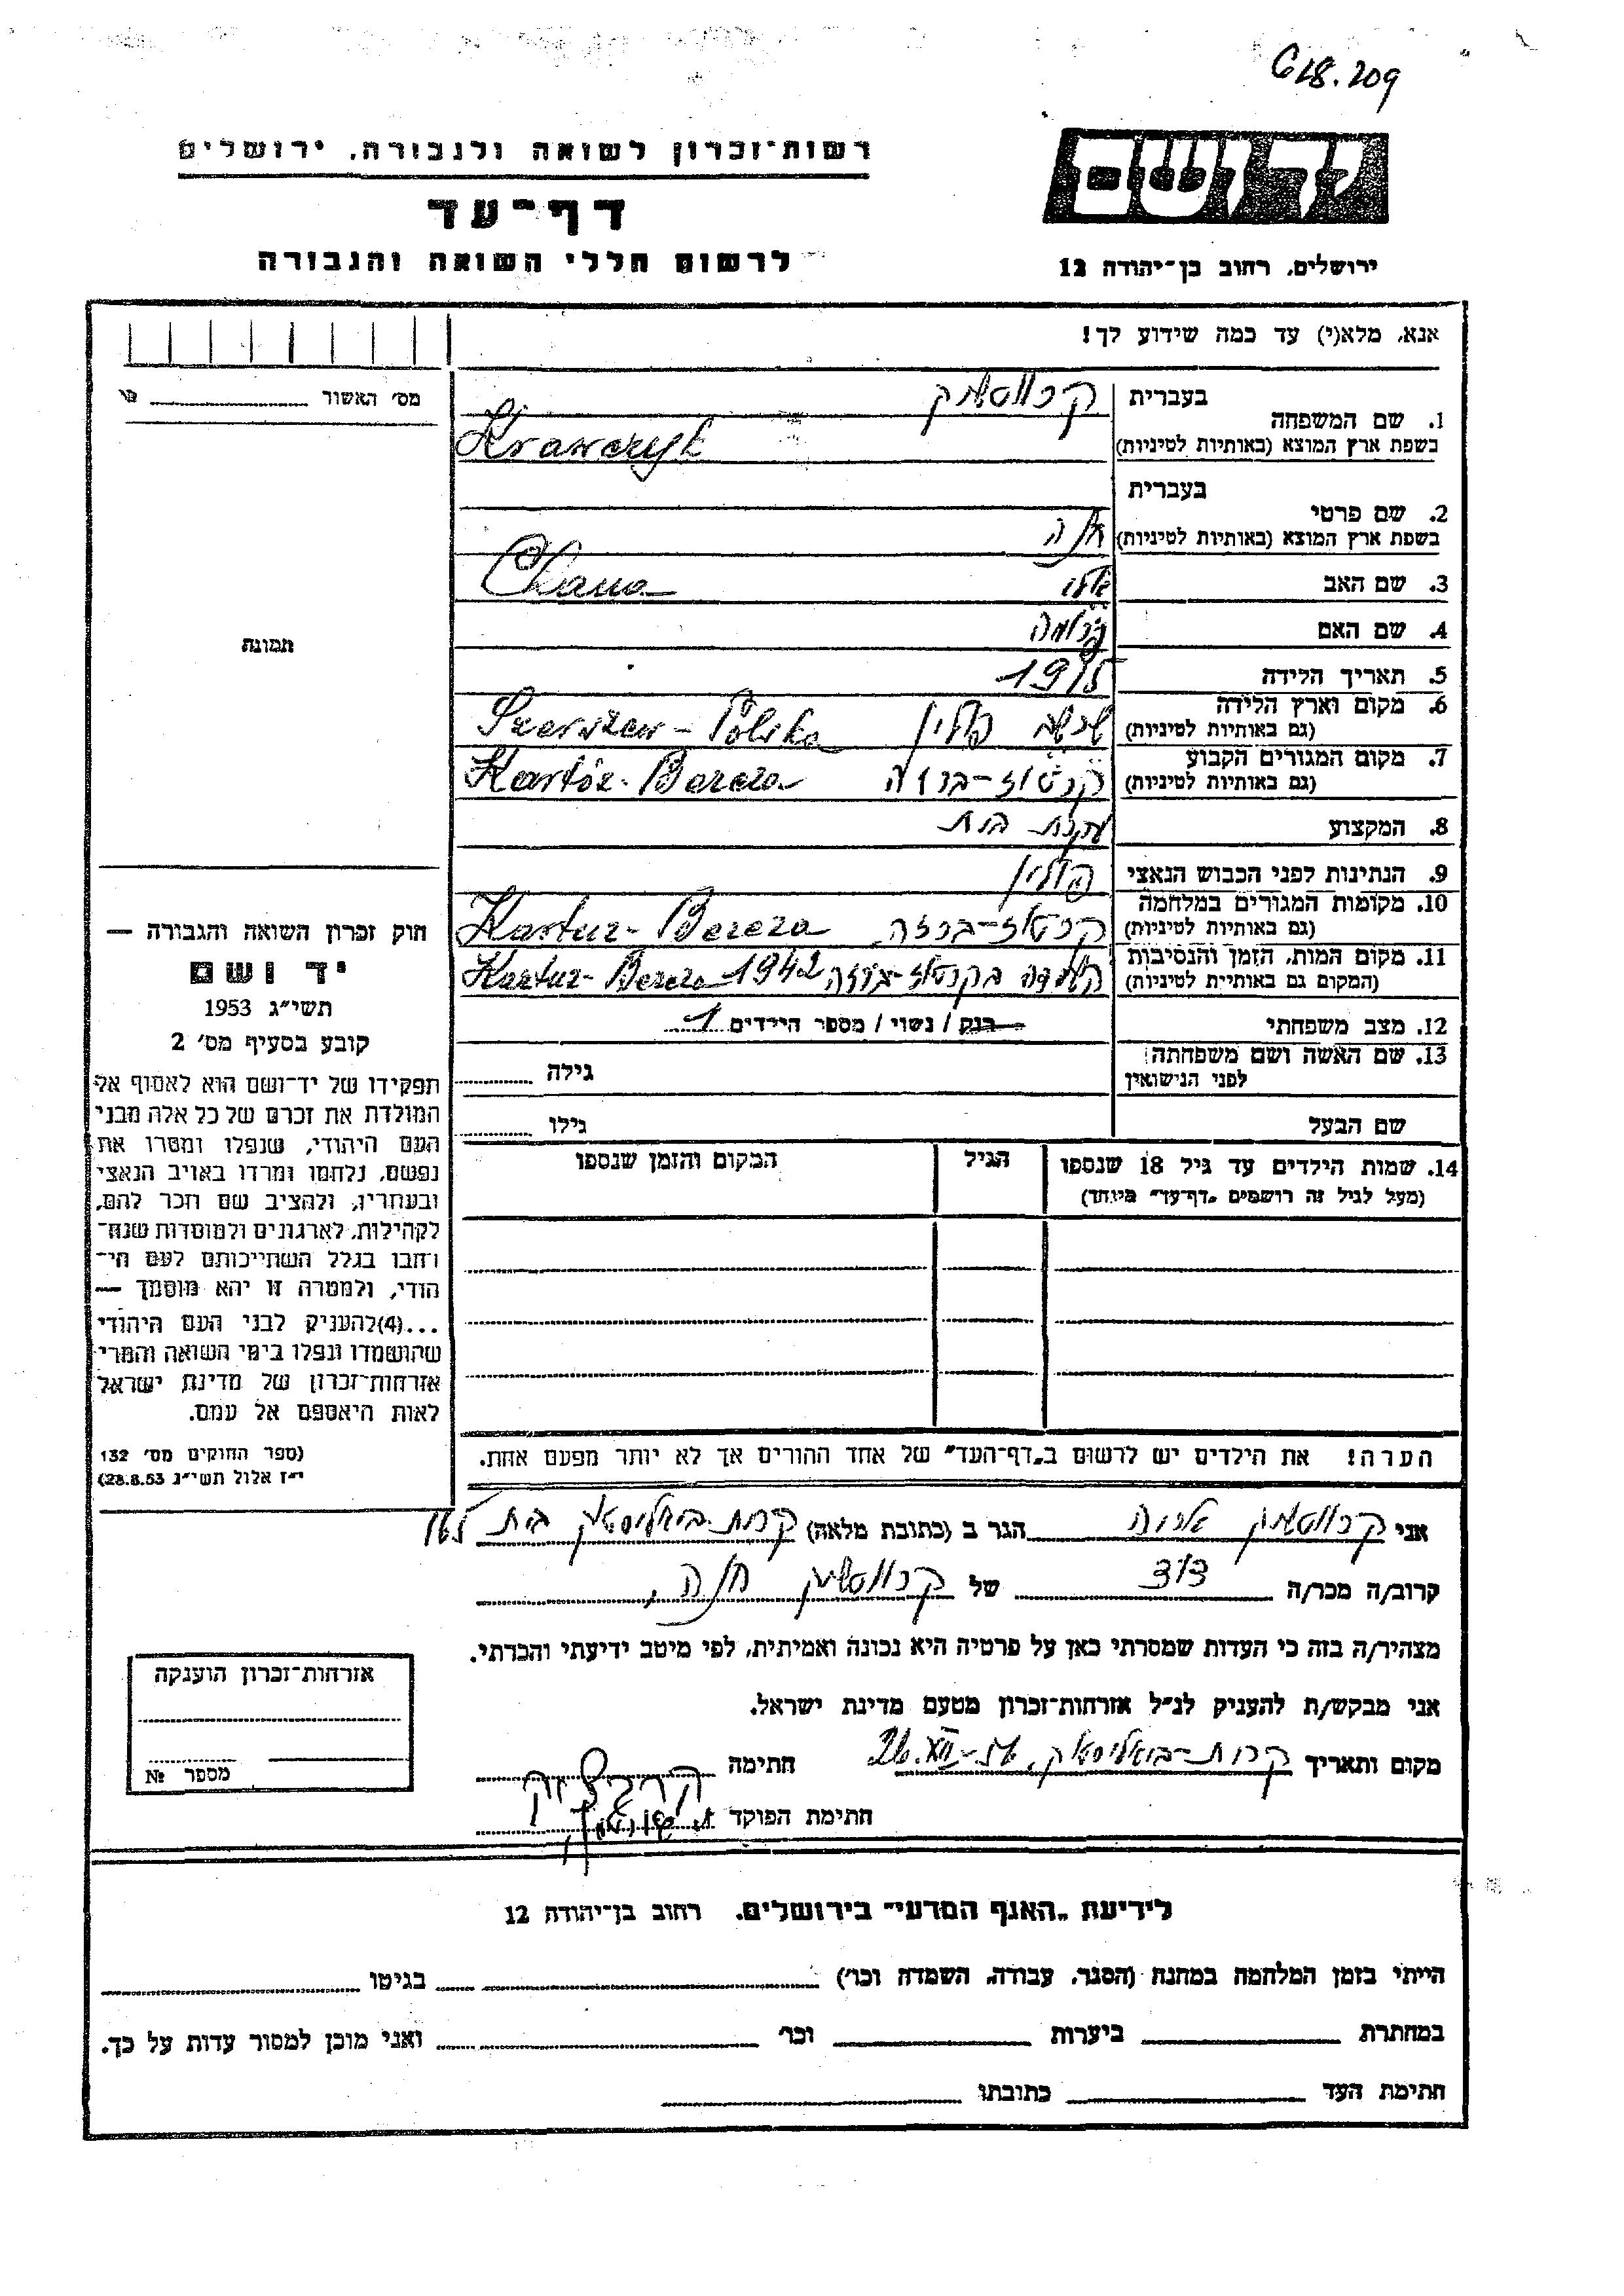 G18.209
רשות־זכרון לשואה ולגבורה, ירושלים
דף־עד
לרשום חללי השואה והגבורה
ידושם
ירושלים, רחוב בן־יהודה 12
אנא, מלא(י) עד כמה שידוע לך!
מס׳ האשור
תמונה
חוק זכרון השואה והגבורה —
יד ושם
תשי״ג 1953
קובע בסעיף מס׳ 2
תפקידו של יד־ושם הוא לאסוף אל
המולדת את זכרם של כל אלה מבני
העם היהודי, שנפלו ומסרו את
נפשם, נלחמו ומרדו באויב הנאצי
ובעוזריו, ולהציב שם וזכר להם,
לקהילות, לארגונים ולמוסדות שנח־
רבו בגלל השתייכותם לעם הי־
הודי, ולמטרה זו יהא מוסמך —
...(4)להעניק לבני העם היהודי
שהושמדו ונפלו בימי השואה והמרי
אזרחות־זכרון של מדינת ישראל
לאות היאספם אל עמם.
(ספר החוקים מס׳ 132
י״ז אלול תשי״ג 28.8.53)
1. שם המשפחה
בעברית קרווטשיק
בשפת ארץ המוצא (באותיות לטיניות) Krawczyk
2. שם פרטי
בעברית
בשפת ארץ המוצא (באותיות לטיניות) חנה
3. שם האב Chana
4. שם האם
5. תאריך הלידה 1915
6. מקום וארץ הלידה
(גם באותיות לטיניות) פולין Szerszew - Polska
7. מקום המגורים הקבוע
(גם באותיות לטיניות) קרטוז-ברזה Kartóz-Bereza
8. המקצוע עקרת בית
9. הנתינות לפני הכבוש הנאצי פולין
10. מקומות המגורים במלחמה
(גם באותיות לטיניות) קרטוז-ברזה Kartuz-Bereza
11. מקום המות, הזמן והנסיבות
(המקום גם באותיות לטיניות) בקרטוז-ברזה 1942 Kartuz-Bereza
12. מצב משפחתי רווק / נשוי / מספר הילדים 1
13. שם האשה ושם משפחתה
לפני הנישואין גילה
שם הבעל גילו
14. שמות הילדים עד גיל 18 שנספו הגיל המקום והזמן שנספו
(מעל לגיל זה רושמים „דף־עד״ מיוחד)
הערה! את הילדים יש לרשום ב„דף־העד״ של אחד ההורים אך לא יותר מפעם אחת.
אני קרווטשיק הגר ב (כתובת מלאה) קרית-ביאליסטוק בית
קרוב/ה מכר/ה דוד של קרווטשיק חנה,
מצהיר/ה בזה כי העדות שמסרתי כאן על פרטיה היא נכונה ואמיתית, לפי מיטב ידיעתי והכרתי.
אני מבקש/ת להעניק לנ״ל אזרחות־זכרון מטעם מדינת ישראל.
מקום ותאריך קרית-ביאליסטוק, 26.XII-56 חתימה
חתימת הפוקד
אזרחות־זכרון הוענקה
מספר №
לידיעת „האגף המדעי״ בירושלים, רחוב בן־יהודה 12
הייתי בזמן המלחמה במחנה (הסגר, עבודה, השמדה וכו׳) בגיטו
במחתרת ביערות וכו׳ ואני מוכן למסור עדות על כך.
חתימת העד כתובתו